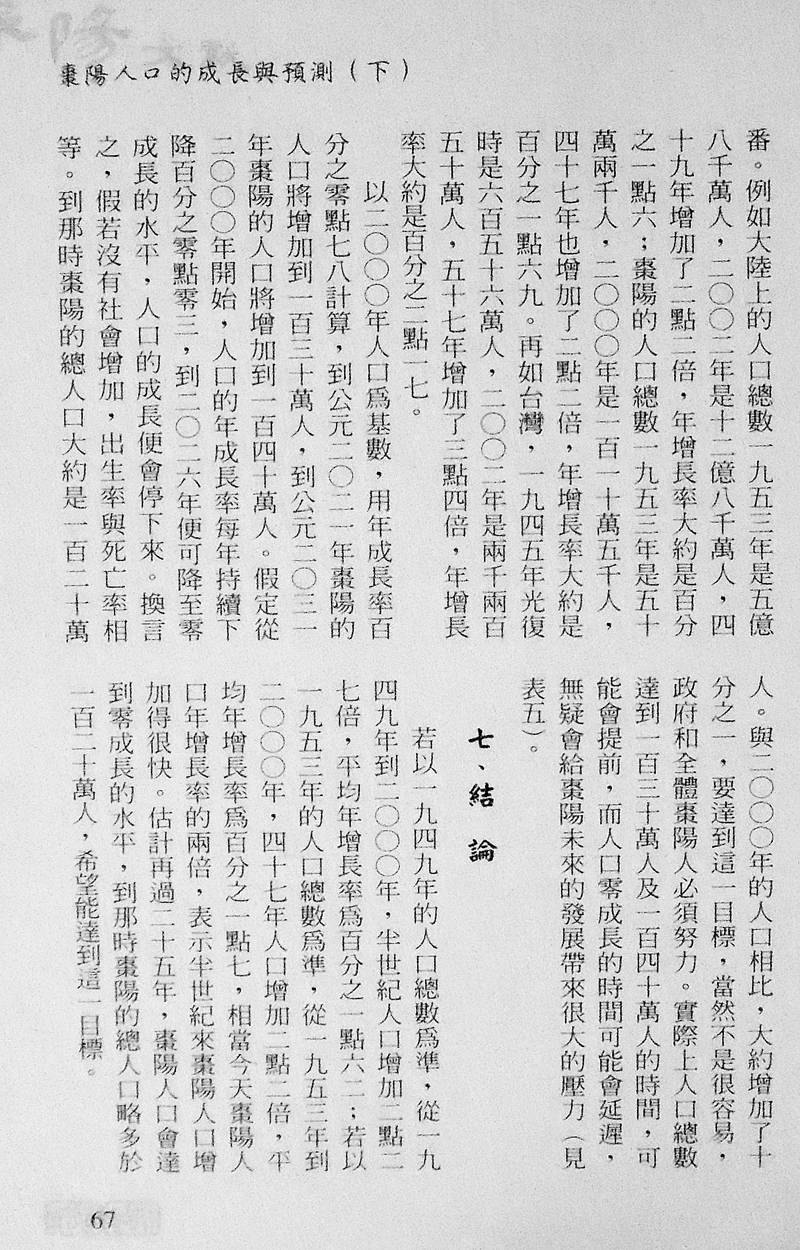 棗陽人口的成長與預測（下）
番。例如大陸上的人口總數一九五三年是五億
八千萬人，二〇〇二年是十二億八千萬人，四
十九年增加了二點二倍，年增長率大約是百分
之一點六；棗陽的人口總數一九五三年是五十
萬兩千人，二〇〇〇年是一百一十萬五千人，
四十七年也增加了二點二倍，年增長率大約是
百分之一點六九。再如台灣，一九四五年光復
時是六百五十六萬人，二〇〇二年是兩千兩百
五十萬人，五十七年增加了三點四倍，年增長
率大約是百分之二點一七。
以二〇〇〇年人口爲基數，用年成長率百
分之零點七八計算，到公元二〇二一年棗陽的
人口將增加到一百三十萬人，到公元二〇三一
年棗陽的人口將增加到一百四十萬人。假定從
二〇〇〇年開始，人口的年成長率每年持續下
降百分之零點零三，到二〇二六年便可降至零
成長的水平，人口的成長便會停下來。換言
之，假若沒有社會增加，出生率與死亡率相
等。到那時棗陽的總人口大約是一百二十萬
人。與二〇〇〇年的人口相比，大約增加了十
分之一，要達到這一目標，當然不是很容易，
政府和全體棗陽人必須努力。實際上人口總數
達到一百三十萬人及一百四十萬人的時間，可
能會提前，而人口零成長的時間可能會延遲，
無疑會給棗陽未來的發展帶來很大的壓力（見
表五）。
七、結論
若以一九四九年的人口總數爲準，從一九
四九年到二〇〇〇年，半世紀人口增加二點二
七倍，平均年增長率爲百分之一點六二；若以
一九五三年的人口總數爲準，從一九五三年到
二〇〇〇年，四十七年人口增加二點二倍，平
均年增長率爲百分之一點七，相當今天棗陽人
口年增長率的兩倍，表示半世紀來棗陽人口增
加得很快。估計再過二十五年，棗陽人口會達
到零成長的水平，到那時棗陽的總人口略多於
一百二十萬人，希望能達到這一目標。
67